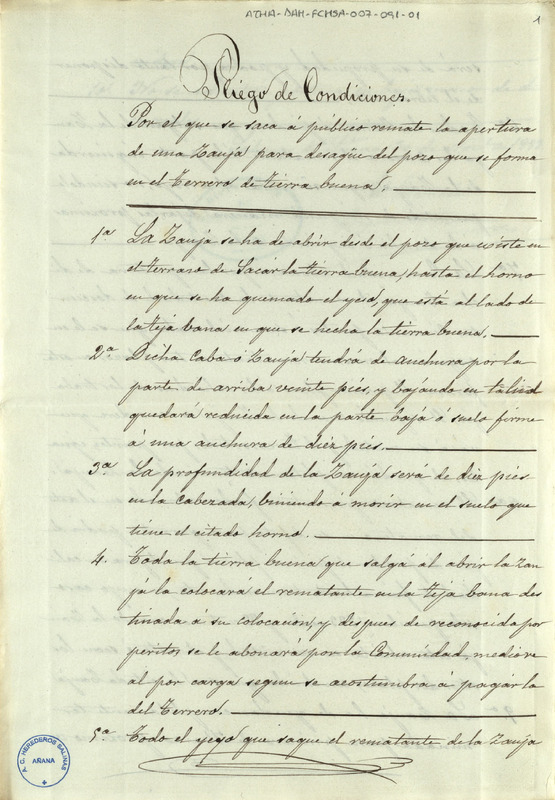 ATHA-DAH-FCHSA-007-091-01
1
Pliego de Condiciones.
Por el que se saca á público remate la apertura
de una Zanja para desagüe del pozo que se forma
en el Terrero de tierra buena.
1ª La Zanja se ha de abrir desde el pozo que existe en
el terraso de Sacar la tierra buena, hasta el horno
en que se ha quemado el yeso, que está al lado de
la teja bana en que se hecha la tierra buena.
2ª Dicha Caba ó Zanja tendrá de anchura por la
parte de arriba veinte piés, y bajando en talud
quedará reducida en la parte bajá ó suelo firme
á una anchura de diez piés.
3ª La profundidad de la Zanja será de diez piés
en la cabezada, biniendo á morir en el suelo que
tiene el citado horno.
4. Toda la tierra buena que salgá al abrir la Zan
ja la colocará el rematante en la Teja bana des
tinada á su colocacion, y despues de reconocida por
peritos se le abonará por la Comunidad,
al por carga segun se acostumbrá á pagár la
del Terrero.
5ª Todo el yeso que saque el rematante de la Zanja
A.C. HEREDEROS SALINAS
AÑANA